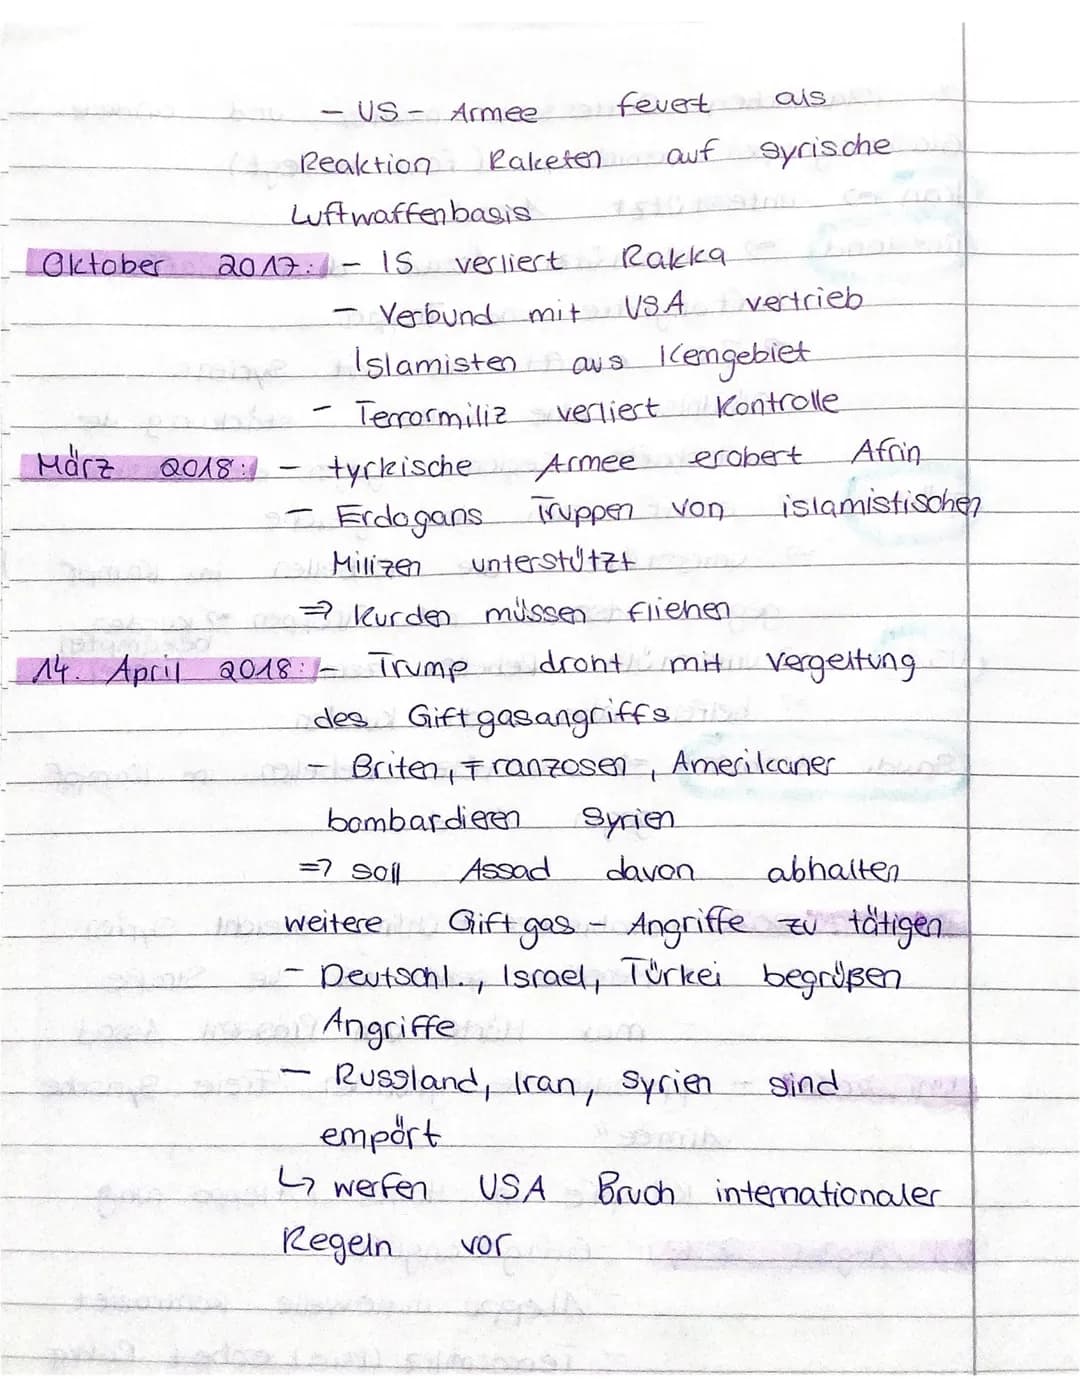 - US - Armee feuert als
Reaktion Raketen auf syrische
Luftwaffenbasis
Oktober 2017: - IS verliert Rakka
- Verbund mit USA vertrieb
Islamisten aus Kerngebiet
- Terrormiliz verliert Kontrolle
März 2018: - tyrkische Armee erobert Afrin
- Erdogans Truppen von islamistischen
Milizen unterstützt
=> Kurden müssen fliehen
14. April 2018: - Trump droht mit Vergeltung
des Giftgasangriffs
- Briten, Franzosen, Amerikaner
bombardieren Syrien
=> soll Assad davon abhalten
weitere Giftgas - Angriffe zu tätigen
- Deutschl., Israel, Türkei begrüßen
Angriffe
- Russland, Iran, Syrien sind
empört
↳ werfen USA Bruch internationaler
Regeln vor